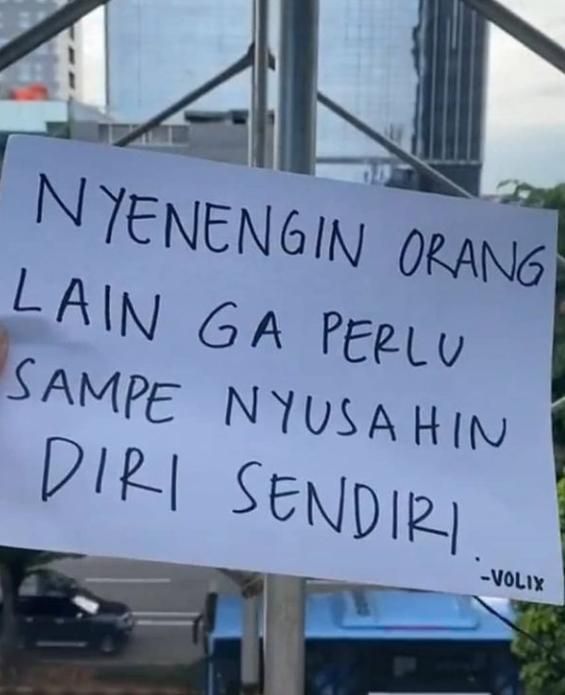 NYENENGIN ORANG
LAIN GA PERLU
SAMPE NYUSAHIN
DIRI SENDIRI.
-VOLIX